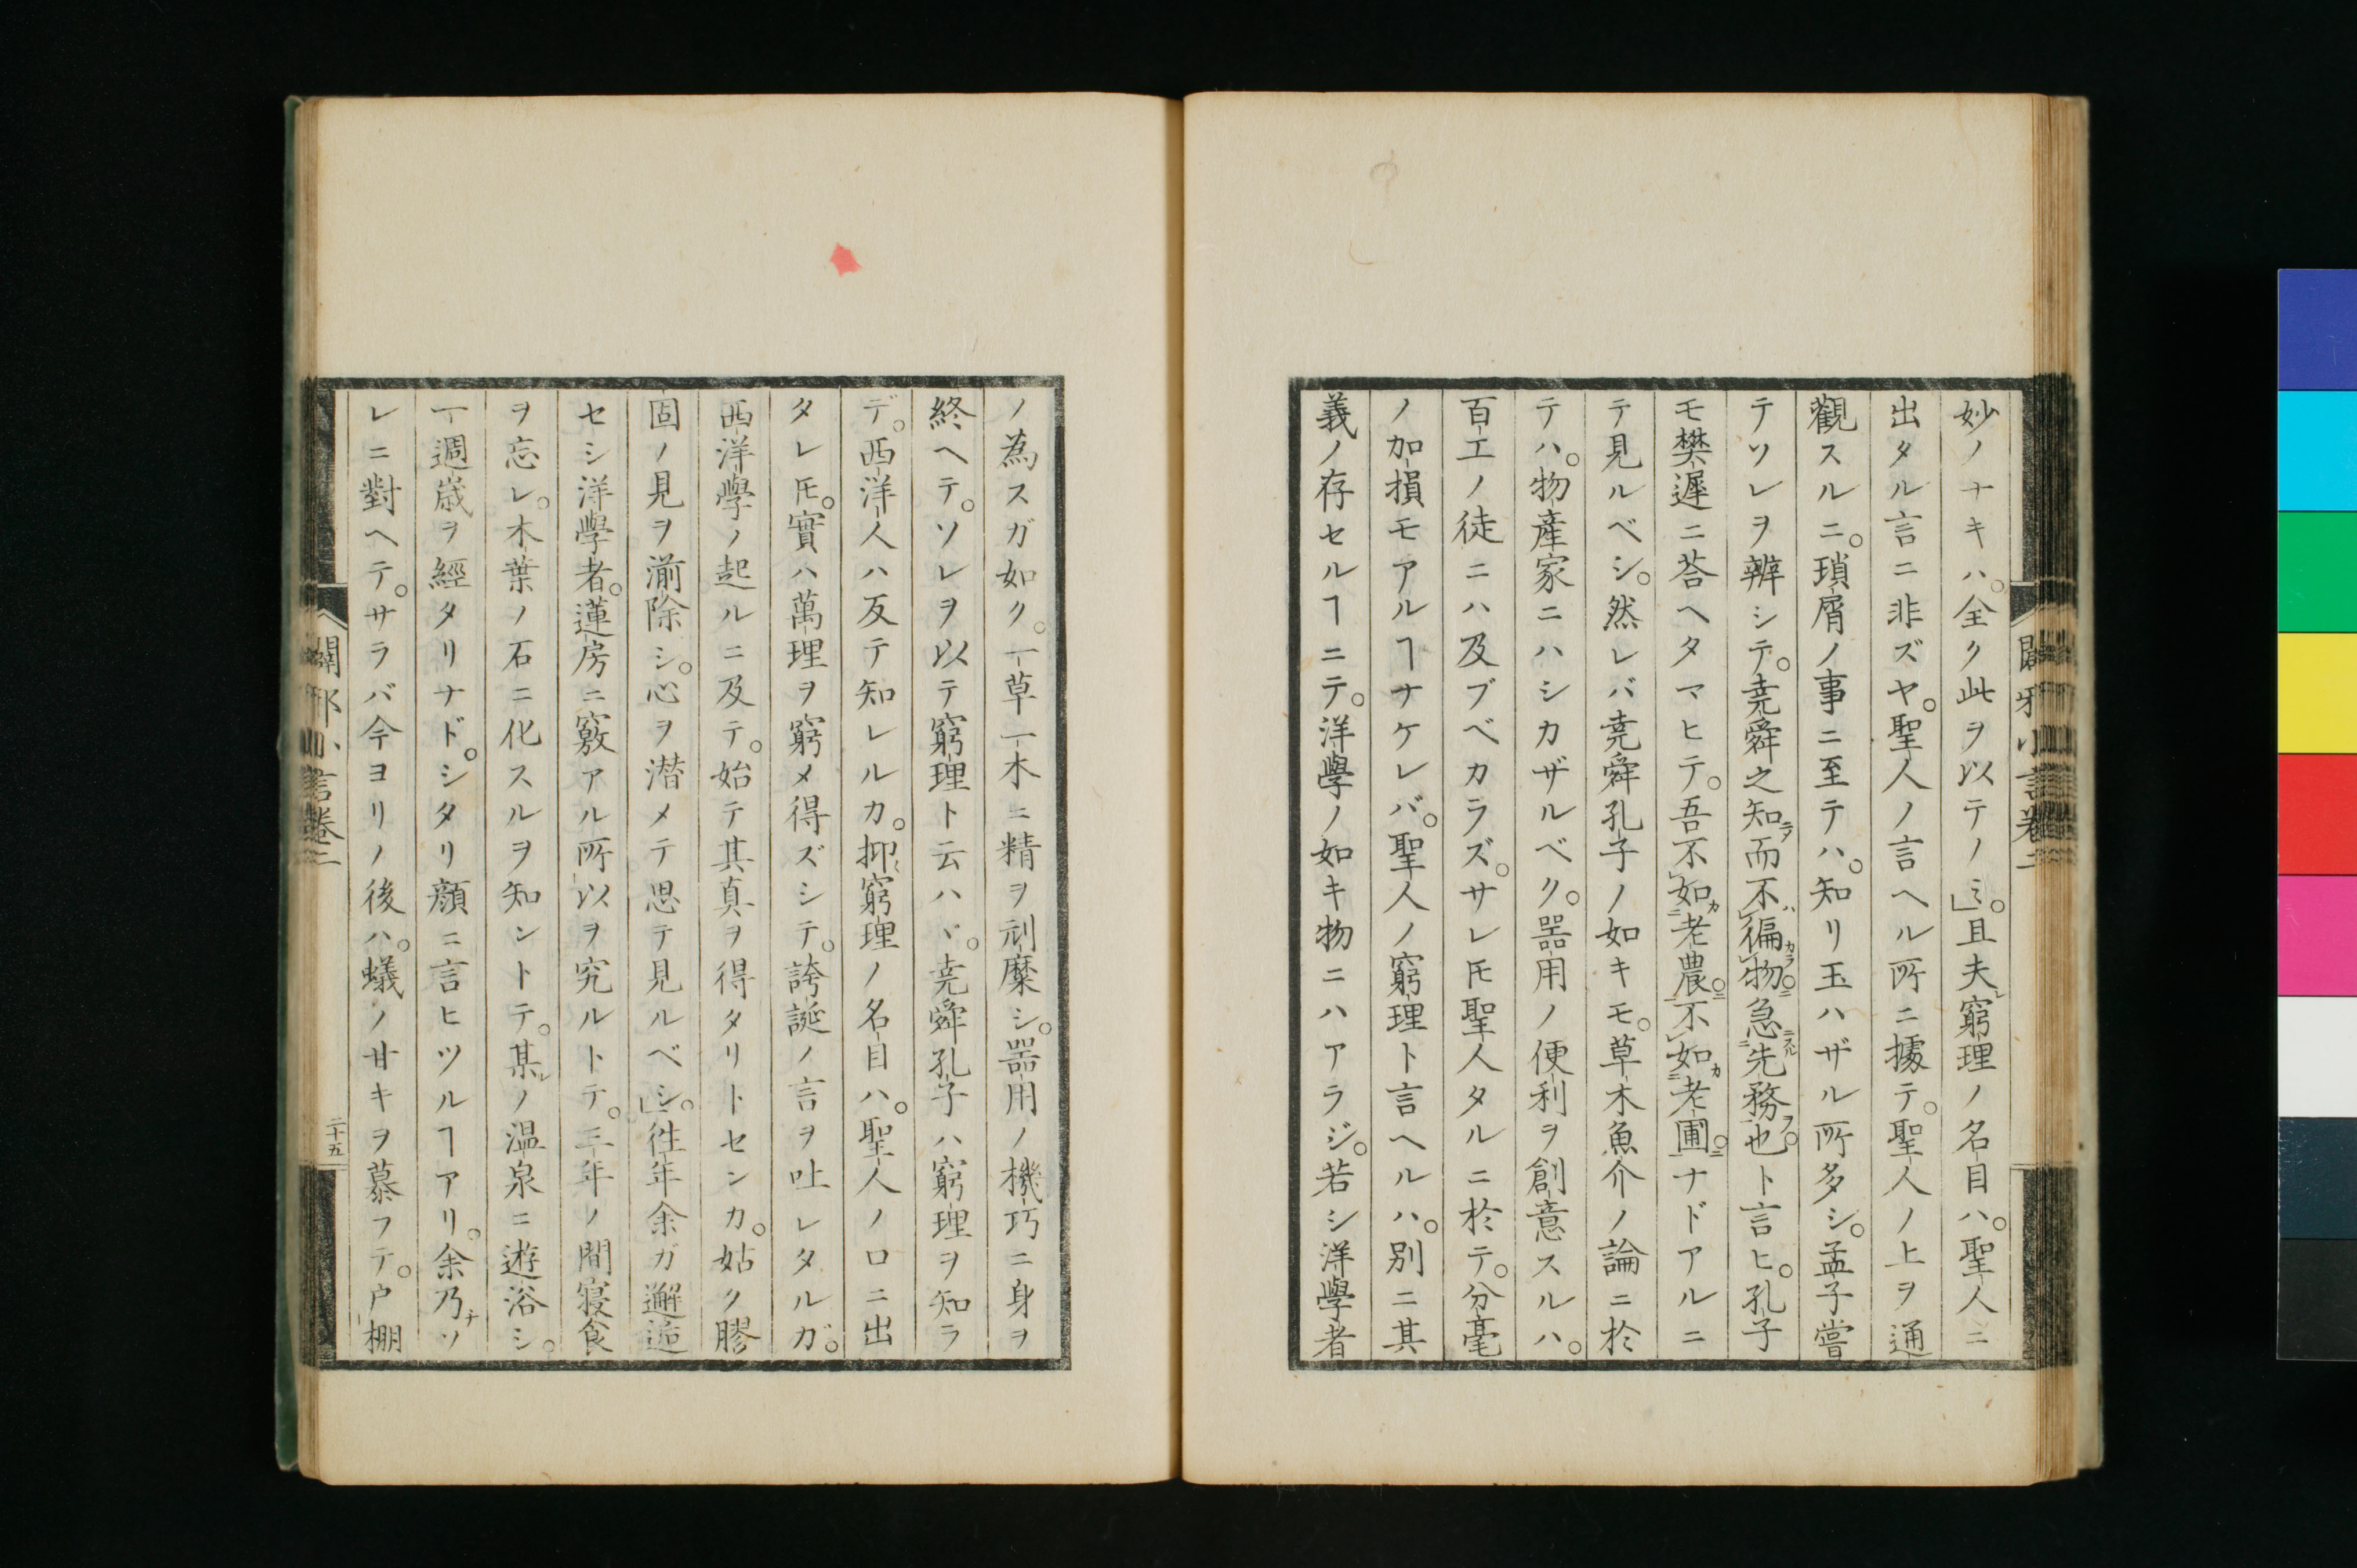 妙ノナキハ。全ク此ヲ以テノミ。」且夫レ窮理ノ名目ハ。聖人ニ
出タル言ニ非ズヤ。聖人ノ言ヘル所ニ據テ。聖人ノ上ヲ通
觀スルニ。瑣屑ノ事ニ至テハ。知リ玉ハザル所多シ。孟子嘗
テソレヲ辨シテ。堯舜之知ニ乄而不ハ徧カラ物ニ。急ニスル先務ヲ也ト言ヒ。孔子
モ樊遲ニ荅ヘタマヒテ。吾不如カ老農ニ。不如カ老圃ニ。ナドアルニ
テ見ルベシ。然レバ堯舜孔子ノ如キモ。草木魚介ノ論ニ於
テハ。物産家ニハシカザルベク。器用ノ便利ヲ創意スルハ。
百工ノ徒ニハ及ブベカラズ。サレ𪜈聖人タルニ於テ。分毫
ノ加損モアルヿナケレバ。聖人ノ窮理ト言ヘルハ。別ニ其
義ノ存セルヿニテ。洋學ノ如キ物ニハアラジ。若シ洋學者
闢邪小言卷二
ノ為スガ如ク。一草一木ニ精ヲ刓糜シ。器用ノ機巧ニ身ヲ
終ヘテ。ソレヲ以テ窮理ト云ハヾ。堯舜孔子ハ窮理ヲ知ラ
デ。西洋人ハ反テ知レルカ。抑〻窮理ノ名目ハ。聖人ノ口ニ出
タレ𪜈。實ハ萬理ヲ窮メ得ズシテ。誇誕ノ言ヲ吐レタルガ。
西洋學ノ起ルニ及テ。始テ其真ヲ得タリトセンカ。姑ク膠
固ノ見ヲ湔除シ。心ヲ潜メテ思テ見ルベシ。」徃年余ガ邂逅
セシ洋學者。蓮房ニ竅アル所以ヲ究ルトテ。三年ノ間寢食
ヲ忘レ。木葉ノ石ニ化スルヲ知ントテ。某レノ温泉ニ遊浴シ。
一週歳ヲ經タリナド。シタリ顔ニ言ヒツルヿアリ。余乃チソ
レニ對ヘテ。サラバ今ヨリノ後ハ。蟻ノ甘キヲ慕フテ。戸棚
闢邪小言卷二
二十五